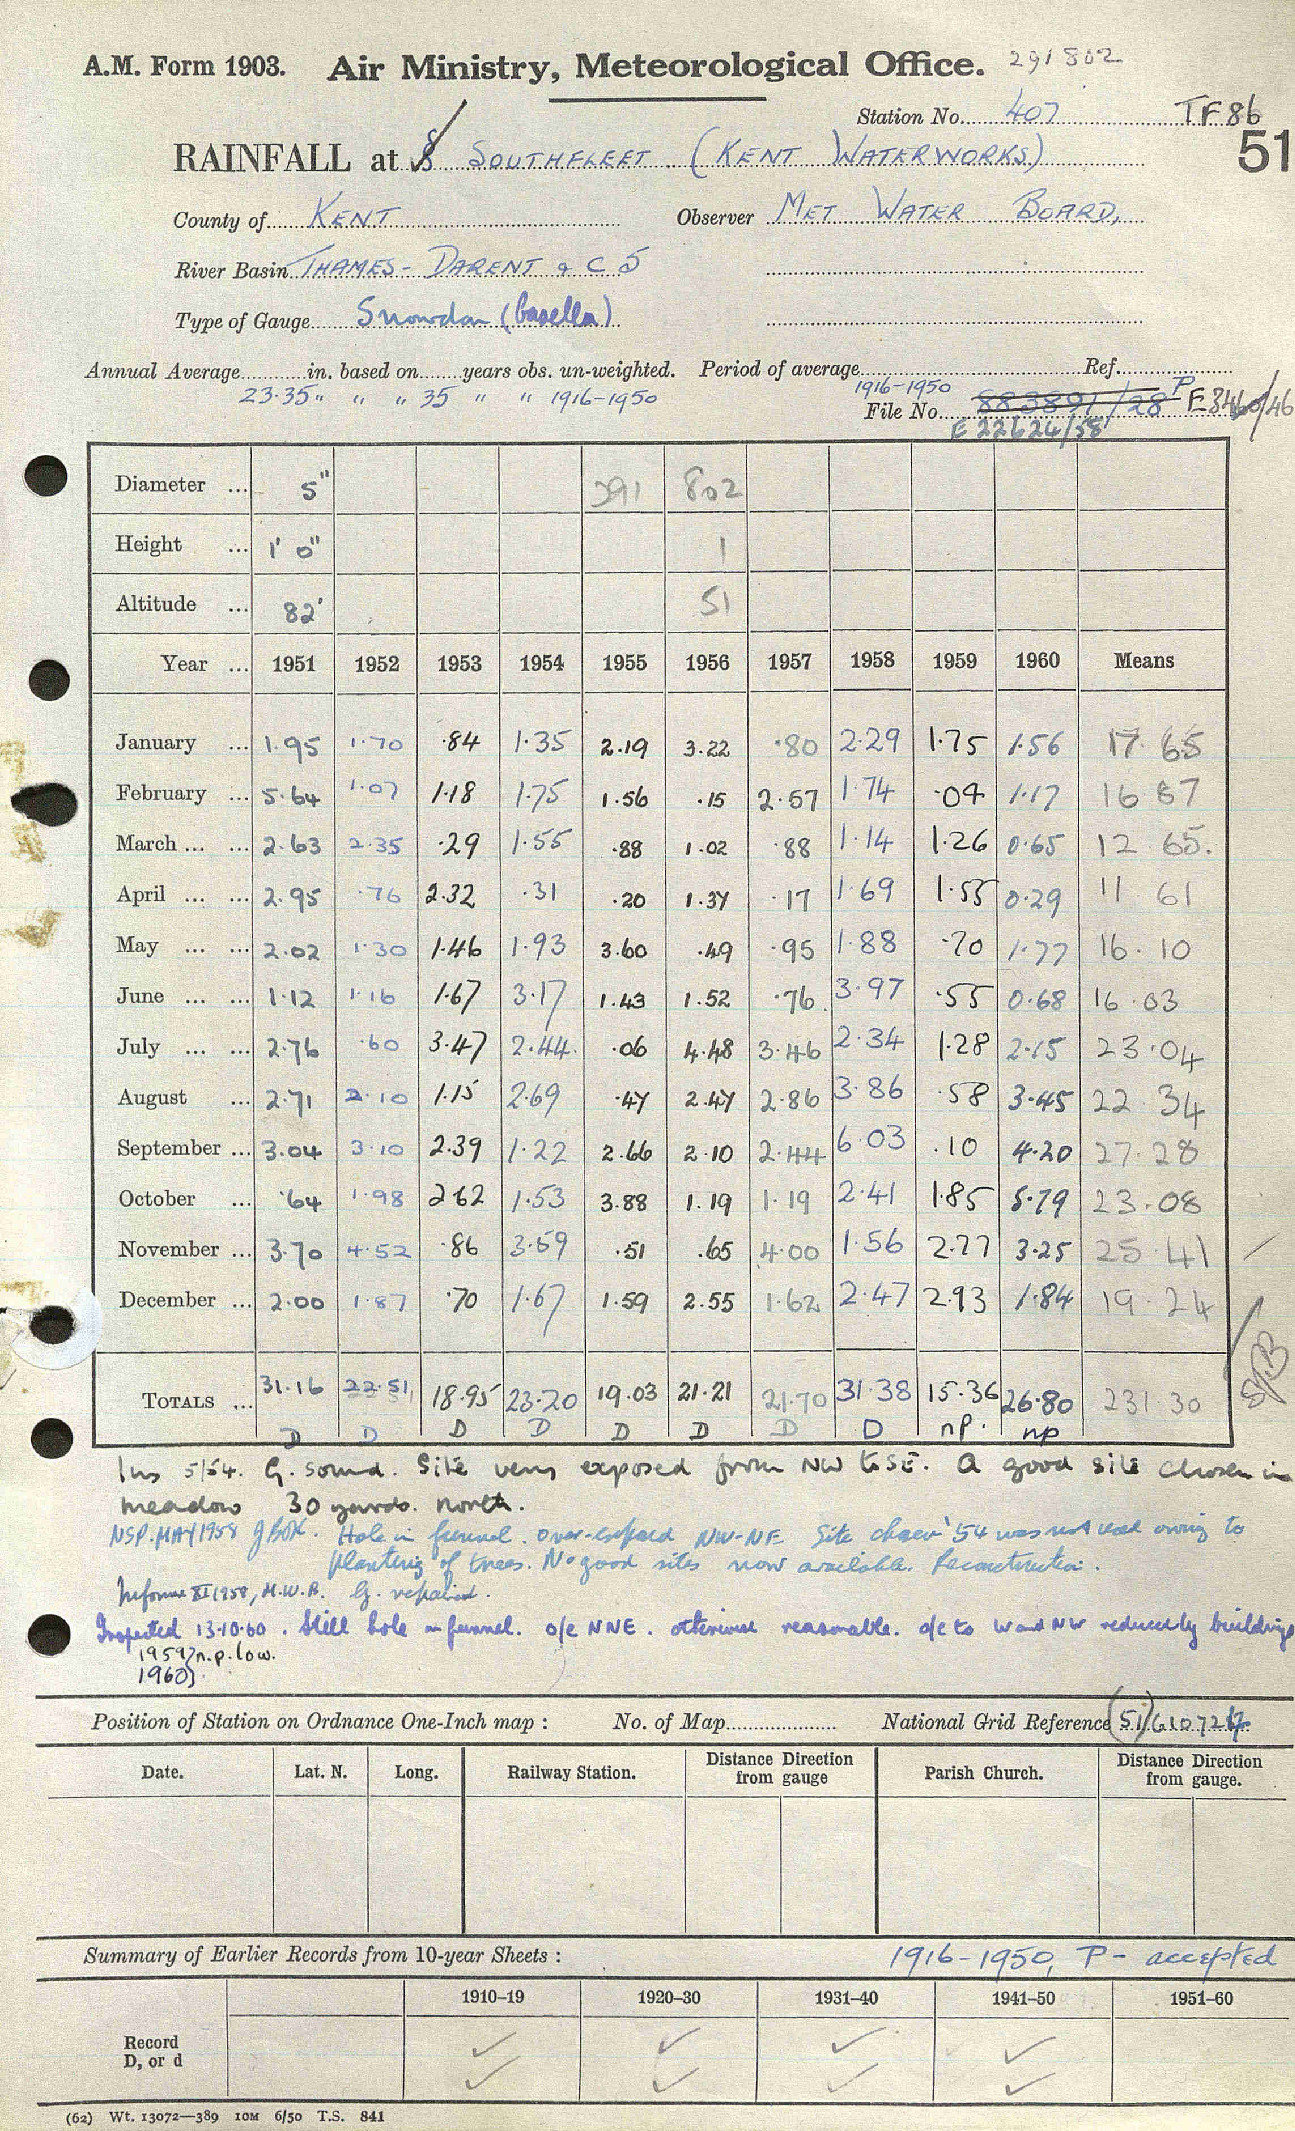 A.M. Form 1903. Air Ministry, Meteorological Office. 291802
Station No. 407 TF 86
51
RAINFALL at SOUTHFLEET (KENT WATERWORKS)
County of KENT Observer MET WATER BOARD,
River Basin THAMES - DARENT & C 5
Type of Gauge Snowdon (Casella)
Annual Average in. based on years obs. un-weighted. Period of average Ref.
23.35 " " " 35 " " 1916-1950 1916-1950
File No. 883891/28 P E 3460/46
E 22624/58
Diameter ... 5" 391 802
Height ... 1' 0" 1
Altitude ... 82' 51
Year ... 1951 1952 1953 1954 1955 1956 1957 1958 1959 1960 Means
January ... 1.95 1.70 .84 1.35 2.19 3.22 .80 2.29 1.75 1.56 17.65
February ... 5.64 1.07 1.18 1.75 1.56 .15 2.57 1.74 .04 1.17 16 87
March ... ... 2.63 2.35 .29 1.55 .88 1.02 .88 1.14 1.26 0.65 12 65.
April ... ... 2.95 .76 2.32 .31 .20 1.37 .17 1.69 1.55 0.29 11 61
May ... ... 2.02 1.30 1.46 1.93 3.60 .49 .95 1.88 .70 1.77 16.10
June ... ... 1.12 1.16 1.67 3.17 1.43 1.52 .76 3.97 .55 0.68 16.03
July ... ... 2.76 .60 3.47 2.44 .06 4.48 3.46 2.34 1.28 2.15 23.04
August ... 2.71 2.10 1.15 2.69 .47 2.47 2.86 3.86 .58 3.45 22.34
September ... 3.04 3.10 2.39 1.22 2.66 2.10 2.44 6 03 .10 4.20 27.28
October ... .64 1.98 2 62 1.53 3.88 1.19 1.19 2.41 1.85 5.79 23.08
November ... 3.70 4.52 .86 3.59 .51 .65 4.00 1.56 2.77 3.25 25 41
December ... 2.00 1.87 .70 1.67 1.59 2.55 1.62 2.47 2.93 1.84 19.24
TOTALS ... 31.16 22.51 18.95 23.20 19.03 21.21 21.70 31.38 15.36 26.80 231 30
D D D D D D D D np. np
Ins 5/54. G. sound. Site very exposed from NW to SE. A good site chosen in
meadow 30 yards north.
NSP. MAY 1958 g BOX. Hole in funnel. over-exposed NW-NE Site chosen '54 was not used owing to
planting of trees. No good sites now available. Reconstruction.
Informed XI 1958, M.W.B. G. repaired.
Inspected 13.10.60. Still hole in funnel. o/e NNE. otherwise reasonable. o/e to W and NW reduced by buildings
1959} n.p. low.
1960}
Position of Station on Ordnance One-Inch map : No. of Map National Grid Reference (51)/610721
Date. Lat. N. Long. Railway Station. Distance Direction from gauge Parish Church. Distance Direction from gauge.
Summary of Earlier Records from 10-year Sheets : 1916-1950, P - accepted
1910–19 1920–30 1931–40 1941–50 1951–60
Record
D, or d
(62) Wt. 13072—389 10M 6/50 T.S. 841